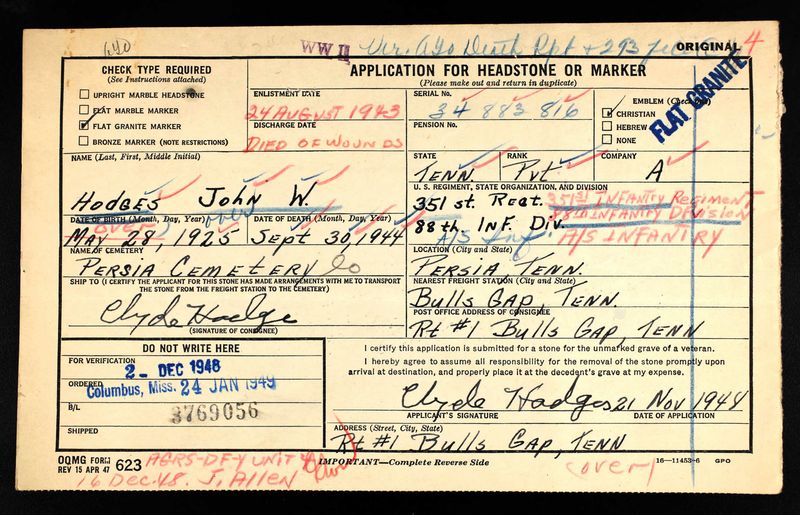 ago
WW II Ver. Ago Death Rpt + 293 file
ORIGINAL 4
CHECK TYPE REQUIRED
(See Instructions attached)
APPLICATION FOR HEADSTONE OR MARKER
(Please make out and return in duplicate)
UPRIGHT MARBLE HEADSTONE
FLAT MARBLE MARKER
✓ FLAT GRANITE MARKER
BRONZE MARKER (NOTE RESTRICTIONS)
ENLISTMENT DATE
24 AUGUST 1943
DISCHARGE DATE
DIED OF WOUNDS
SERIAL No.
34 883 816
PENSION No.
EMBLEM (Check one)
✓ CHRISTIAN
HEBREW
NONE
FLAT GRANITE
NAME (Last, First, Middle Initial)
Hodges John W.
STATE
Tenn.
RANK
Pvt
COMPANY
A
U. S. REGIMENT, STATE ORGANIZATION, AND DIVISION
351 st. Regt. 351st INFANTRY REGIMENT
88th. Inf. Div. 88th INFANTRY DIVISION
A/S Inf. A/S INFANTRY
DATE OF BIRTH (Month, Day, Year)
(over)
May 28, 1925
DATE OF DEATH (Month, Day, Year)
Sept 30, 1944
NAME OF CEMETERY
Persia Cemetery Co
LOCATION (City and State)
Persia, Tenn.
SHIP TO (I CERTIFY THE APPLICANT FOR THIS STONE HAS MADE ARRANGEMENTS WITH ME TO TRANSPORT
THE STONE FROM THE FREIGHT STATION TO THE CEMETERY)
Clyde Hodge
(SIGNATURE OF CONSIGNEE)
NEAREST FREIGHT STATION (City and State)
Bulls Gap, Tenn.
POST OFFICE ADDRESS OF CONSIGNEE
Rt #1 Bulls Gap, Tenn
DO NOT WRITE HERE
FOR VERIFICATION
2 - DEC 1948
ORDERED
Columbus, Miss. 24 JAN 1949
B/L
3769056
SHIPPED
I certify this application is submitted for a stone for the unmarked grave of a veteran.
I hereby agree to assume all responsibility for the removal of the stone promptly upon
arrival at destination, and properly place it at the decedent's grave at my expense.
Clyde Hodges 21 Nov 1948
APPLICANT'S SIGNATURE
DATE OF APPLICATION
ADDRESS (Street, City, State)
Rt #1 Bulls Gap, Tenn
OQMG FORM
REV 15 APR 47 623
AGRS-DF-Y UNIT 4
16 Dec. 48. J. Allen
(over)
IMPORTANT—Complete Reverse Side
(over)
16—11453-6 GPO